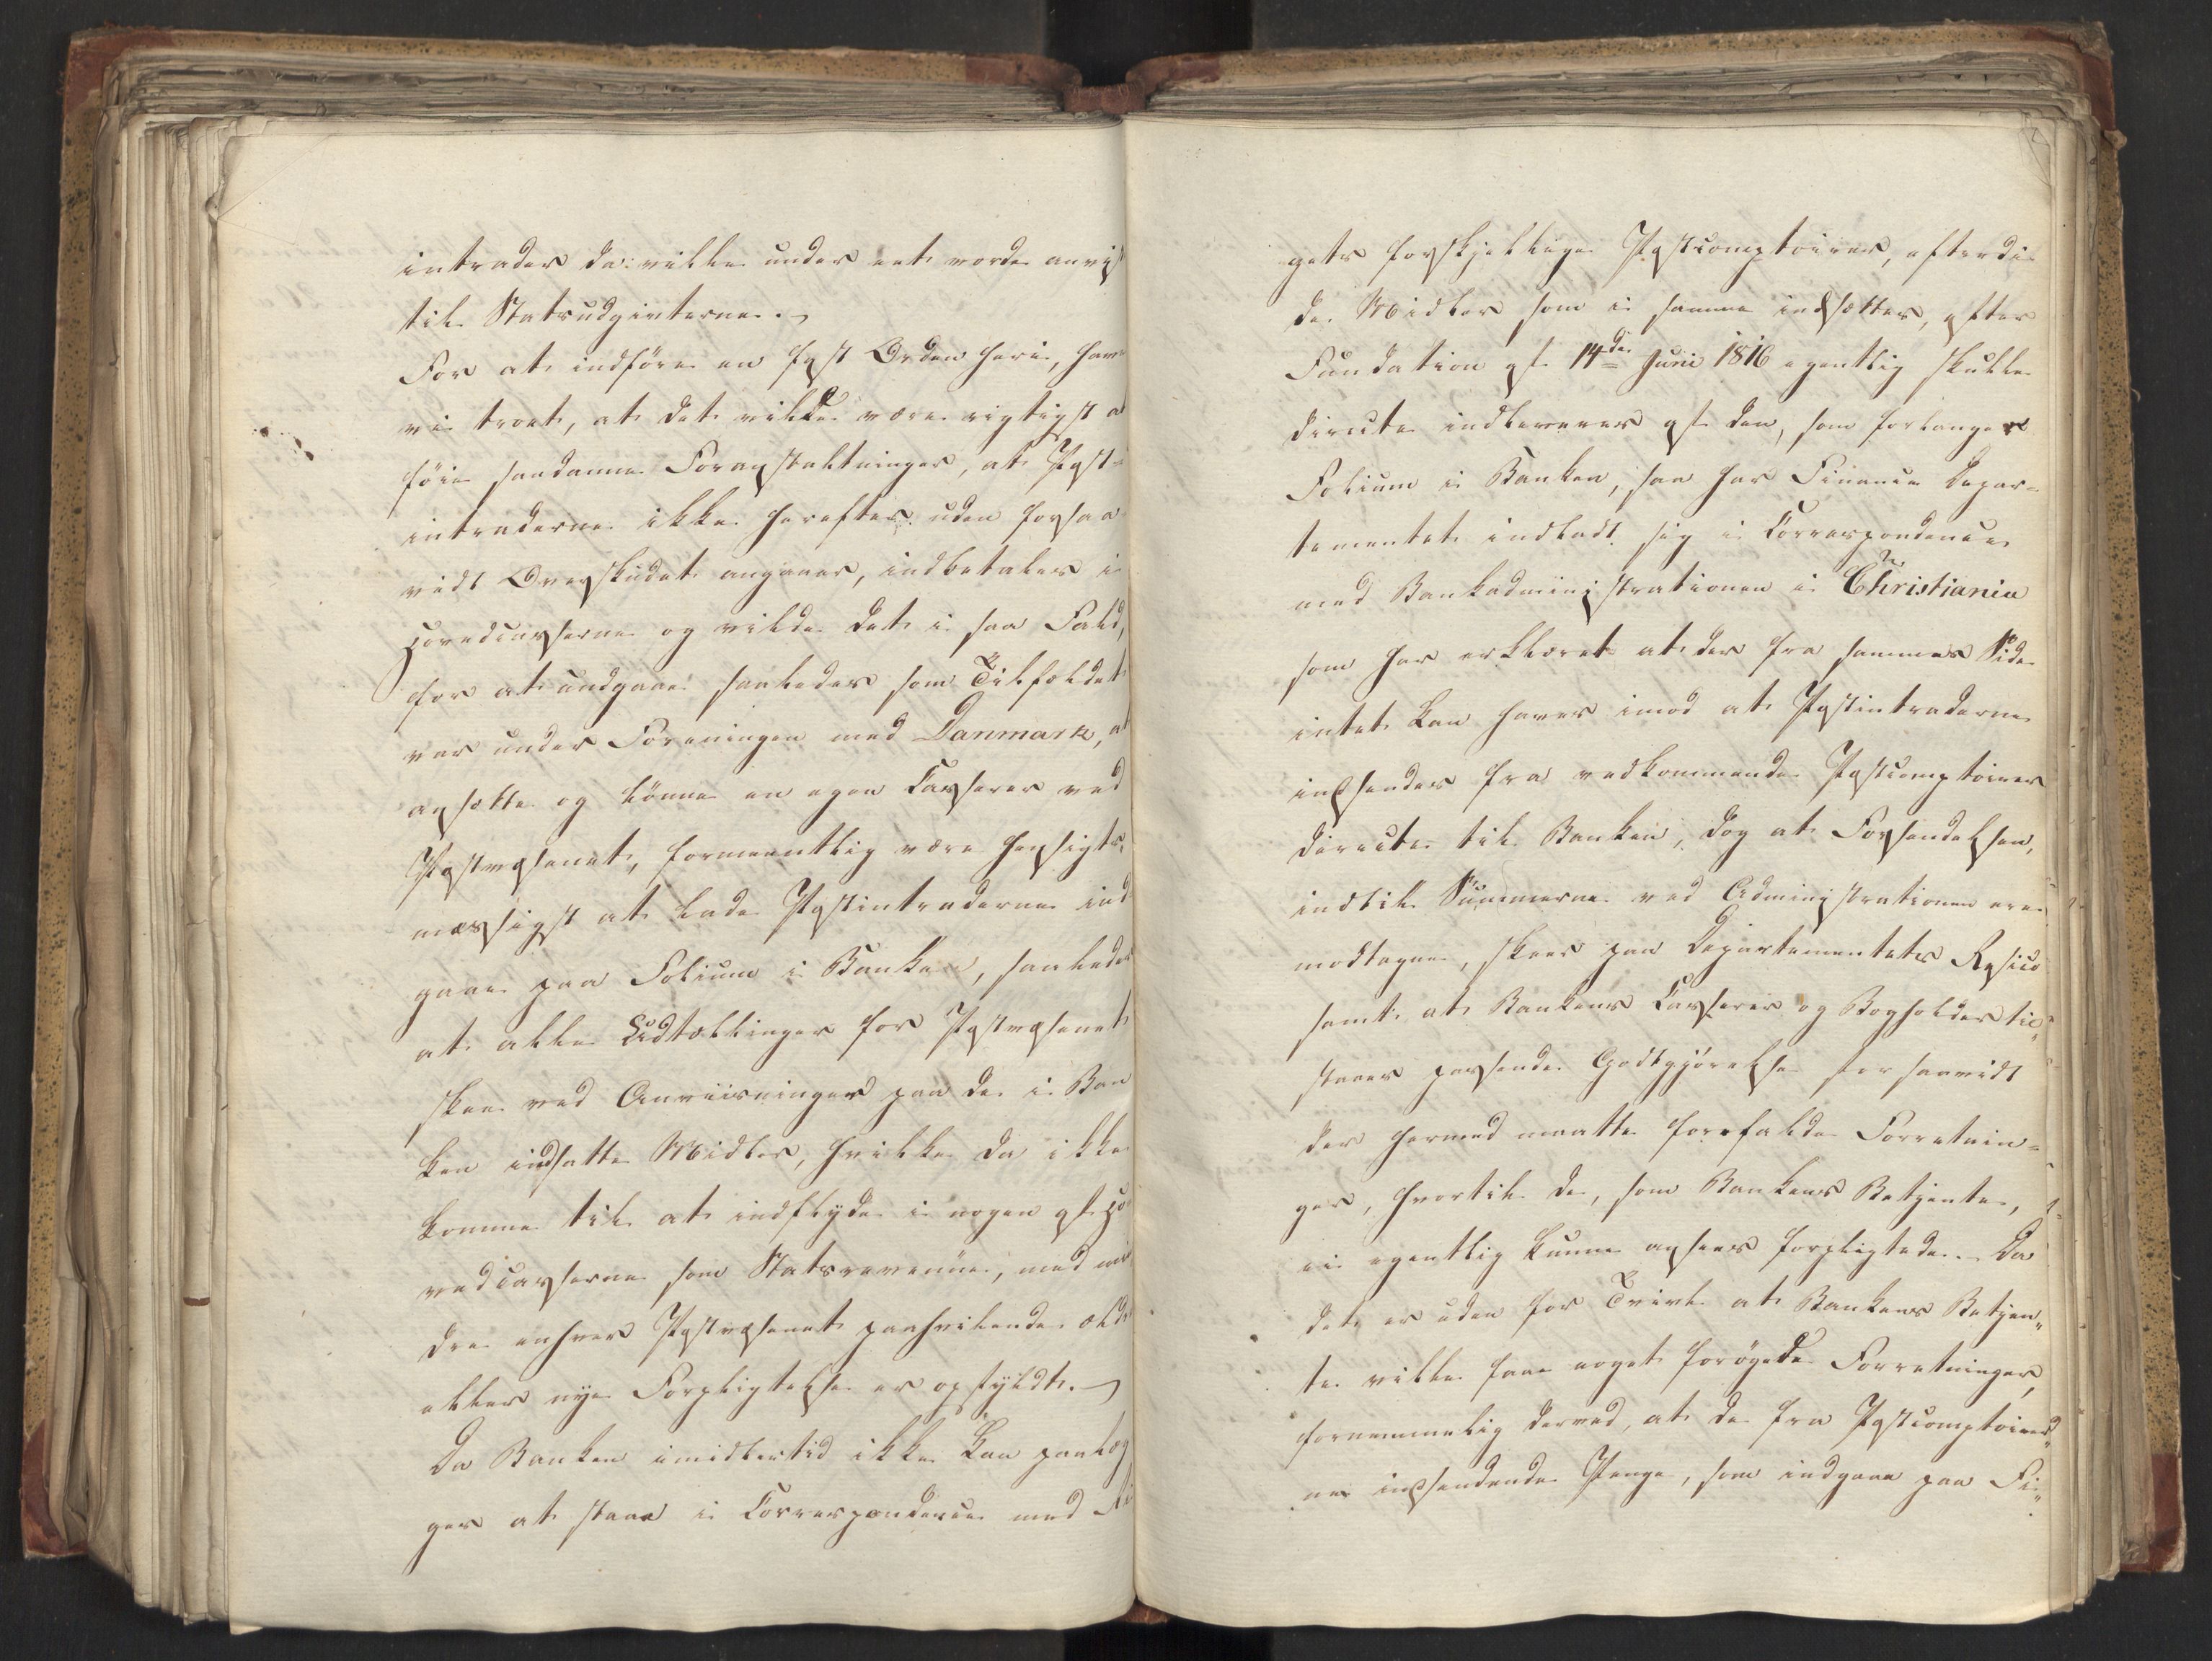 intrader da ville under eet vorde anvist
til Statsudgivterne. –
For at indføre en fast Orden heri, have
vi troet, at det vilde være rigtigst at
føie saadanne Foranstaltninger, at Post-
intraderne ikke herefter uden forsaa
vidt Overskudet angaaer, indbetales i
Hovedcasserne og vilde det i saa Fald,
for at undgaae saaledes som Tilfældet
var under Foreningen med Danmark, at
ansætte og lønne en egen Casserer ved
Postvæsenet, formeentlig være hensigts-
mæssigst at lade Postintraderne ind
gaae paa Folium i Banken, saaledes
at alle Udtællinger for Postvæsenet
skee ved Anviisninger paa de i Ban
ken indsatte Midler, hvilke da ikke
komme til at indflyde i nogen af Ho
vedcasserne som Statsrevenüe, med min
dre enhver Postvæsenet paahvilende ældre
eller nye Forpligtelse er opfyldt. –
Da Banken imidlertid ikke kan paalæg
ges at staae i Correspondence med Ri
gets forskjellige Postcomptoirer, efterdi
de Midler som i samme indsættes, efter
Fundation af 14de Juni 1816 egentlig skulle
directe indleveres af den, som forlanger
Folium i Banken, saa har Finance Depar-
tementet indladt sig i Correspondence
med Bankadministrationen i Christiania
som har erklæret at der fra sammes Side
intet kan haves imod at Postintraderne
indsendes fra vedkommende Postcomptoirer
directe til Banken, dog at Forsendelsen,
indtil Summerne ved Administrationen ere
modtagne, skeer paa Departementets Resico
samt at Bankens Casserer og Bogholder til-
staaes passende Godtgjørelse for saavidt
der hermed maatte forefalde Forretnin-
ger, hvortil de, som Bankens Betjente,
ei egentlig kunne ansees forpligtede. Da
det er uden for Tvivl at Bankens Betjen-
te ville faae noget forøgede Forretninger,
fornemmelig derved, at de fra Postcomptoirer-
ne indsendende Penge, som indgaae paa Fi-